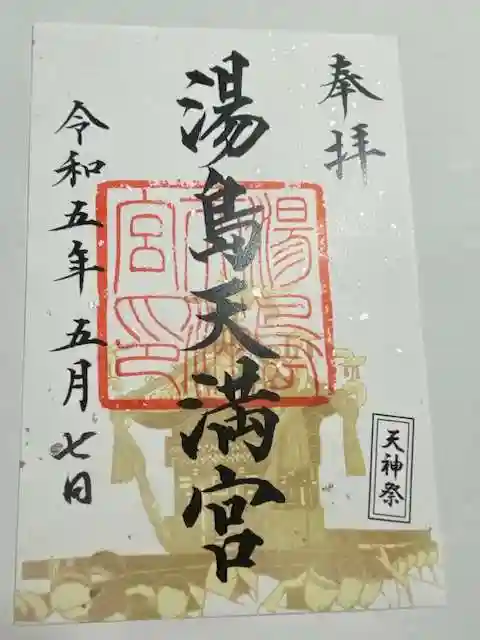 奉拝
天神祭
湯島天満宮
湯島天満宮印
令和五年五月七日